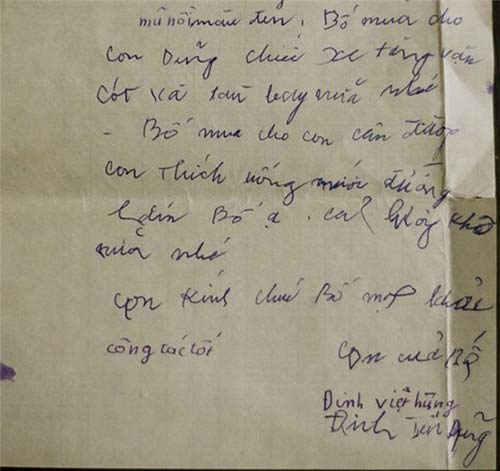 mũ nồi màu đen. Bố mua cho
con Dũng chiếc xe tăng vặn
cót và tàu bay nữa nhé
- Bố mua cho con cân đường
con thích uống nước đường
lắm Bố ạ. cá khô
nữa nhé
con kính chúc Bố mạnh khỏe
công tác tốt
con của Bố
Đinh việt hùng
Đinh Tiến Dũng